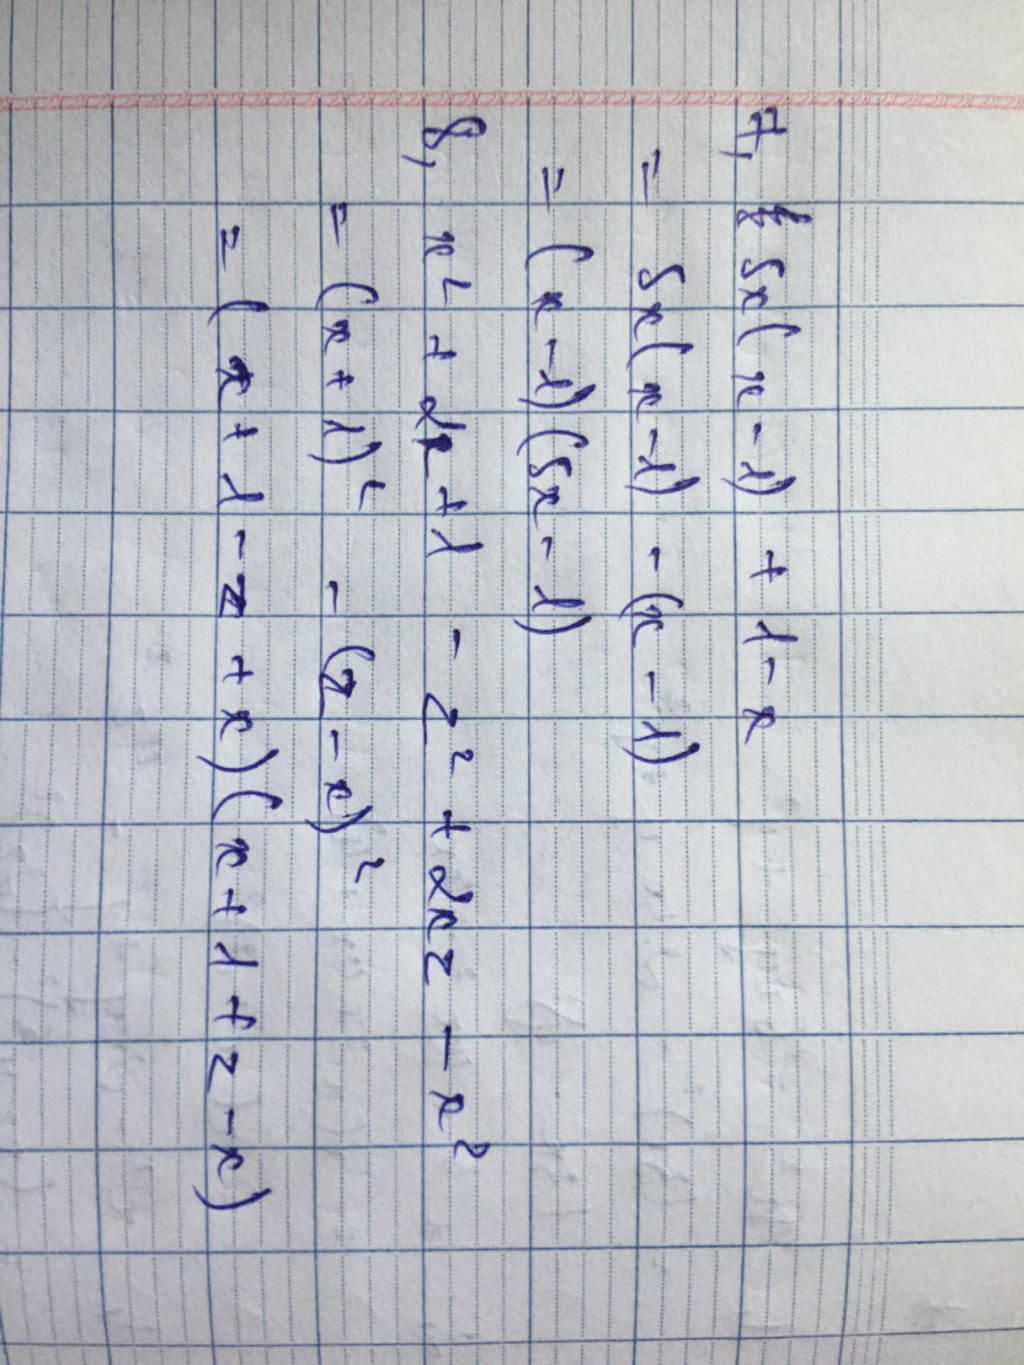 7, 5x(x-1) + 1-x
= 5x(x-1) - (x-1)
= (x-1)(5x-1)
8, x² + 2x+1 - z² + 2xz - x²
= (x+1)² - (z-x)²
= (x+1-z+x)(x+1+z-x)